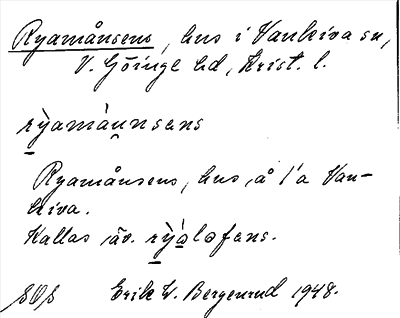 Ryamånsens, hus i Vankiva sn,
V. Göinge hd, Krist. l.
ry̆amàu̯nsens
Ryamånsens, hus å l/a Van-
kiva.
Kallas äv. rỳalofens.
SOS Erik W. Bergenrud 1948.